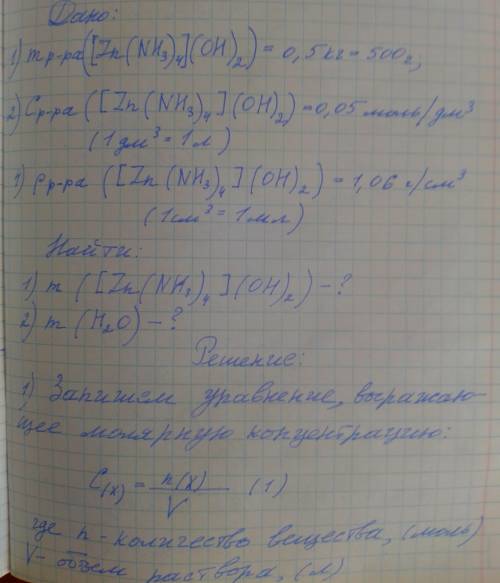 Дано:
1) m р-ра([Zn(NH₃)₄](OH)₂) = 0,5 кг = 500 г,
2) C р-ра ([Zn(NH₃)₄](OH)₂) = 0,05 моль/дм³
(1 дм³ = 1 л)
3) ρ р-ра ([Zn(NH₃)₄](OH)₂) = 1,06 г/см³
(1 см³ = 1 мл)
Найти:
1) m ([Zn(NH₃)₄](OH)₂) – ?
2) m (H₂O) – ?
Решение:
1) Запишем уравнение, выражаю-
щее молярную концентрацию:
C(x) = n(x)/V (1)
где n - количество вещества, (моль)
V - объем раствора, (л)